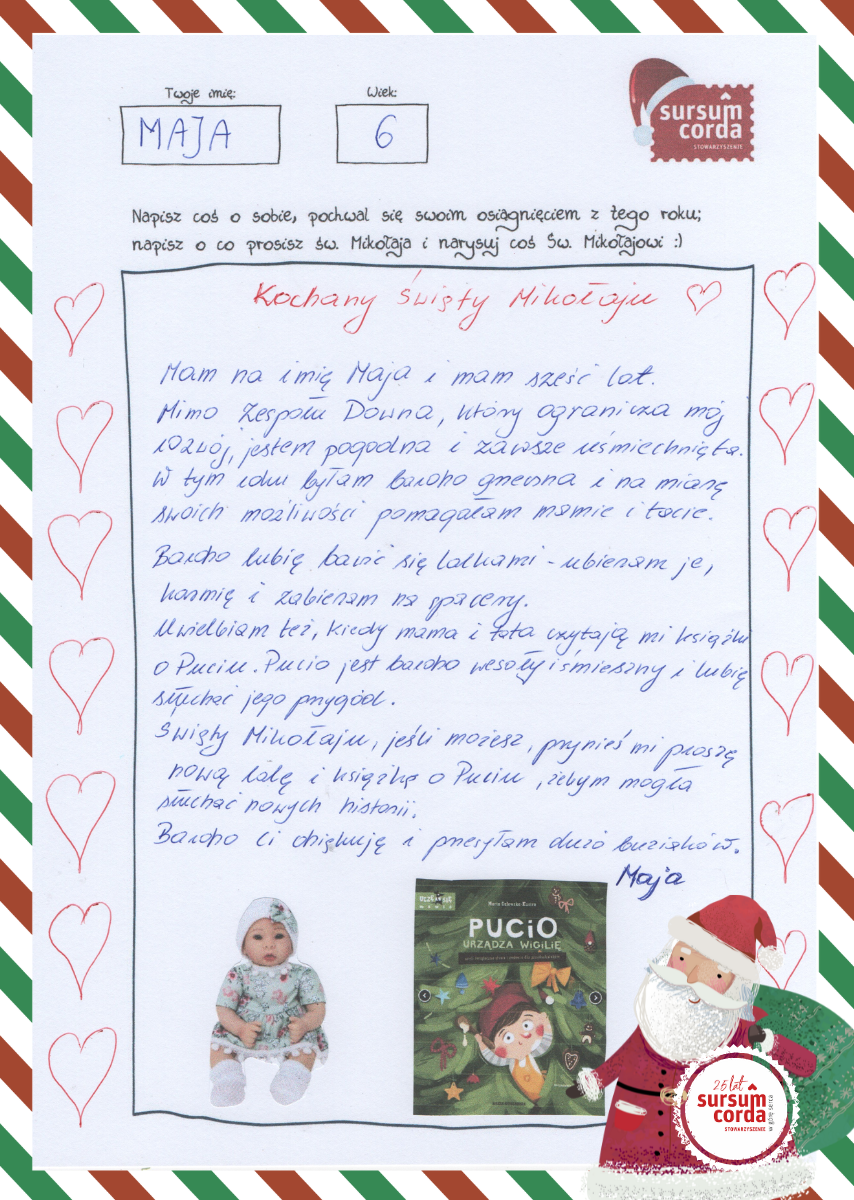 Twoje imię:
Wiek:
MAJA
6
sursum
corda
STOWARZYSZENIE
Napisz coś o sobie, pochwal się swoim osiągnięciem z tego roku;
napisz o co prosisz św. Mikołaja i narysuj coś Św. Mikołajowi :)
Kochany Święty Mikołaju
Mam na imię Maja i mam sześć lat.
Mimo Zespołu Downa, który ogranicza mój
rozwój, jestem pogodna i zawsze uśmiechnięta.
W tym roku byłam bardzo grzeczna i na miarę
swoich możliwości pomagałam mamie i tacie.
Bardzo lubię bawić się lalkami - ubieram je,
karmię i zabieram na spacery.
Uwielbiam też, kiedy mama i tata czytają mi książki
o Puciu. Pucio jest bardzo wesoły i śmieszny i lubię
słuchać jego przygód.
Święty Mikołaju, jeśli możesz, przynieś mi proszę
nową lalę i książkę o Puciu, żebym mogła
słuchać nowych historii.
Bardzo Ci dziękuję i przesyłam dużo buziaków.
Maja
PUCIO
URZĄDZA WIGILIĘ
25 lat
sursum
corda
STOWARZYSZENIE
w górę serca